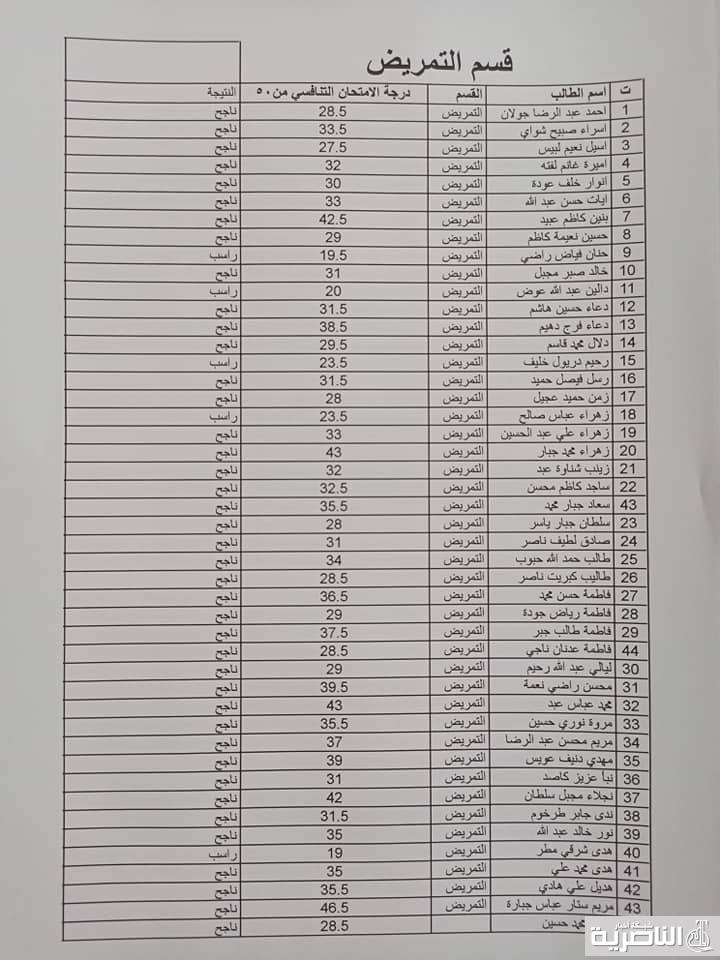 قسم التمريض
ت اسم الطالب القسم درجة الامتحان التنافسي من ٥٠ النتيجة
1 احمد عبد الرضا جولان التمريض 28.5 ناجح
2 اسراء صبيح شواي التمريض 33.5 ناجح
3 اسيل نعيم لبيس التمريض 27.5 ناجح
4 اميرة غانم لفته التمريض 32 ناجح
5 انوار خلف عودة التمريض 30 ناجح
6 ايات حسن عبد الله التمريض 33 ناجح
7 بنين كاظم عبيد التمريض 42.5 ناجح
8 حسين نعيمة كاظم التمريض 29 ناجح
9 حنان فياض راضي التمريض 19.5 راسب
10 خالد صبر مجبل التمريض 31 ناجح
11 دالين عبد الله عوض التمريض 20 راسب
12 دعاء حسين هاشم التمريض 31.5 ناجح
13 دعاء فرج دهيم التمريض 38.5 ناجح
14 دلال محمد قاسم التمريض 29.5 ناجح
15 رحيم دريول خليف التمريض 23.5 راسب
16 رسل فيصل حميد التمريض 31.5 ناجح
17 زمن حميد عجيل التمريض 28 ناجح
18 زهراء عباس صالح التمريض 23.5 راسب
19 زهراء علي عبد الحسين التمريض 33 ناجح
20 زهراء محمد جبار التمريض 43 ناجح
21 زينب شناوة عبد التمريض 32 ناجح
22 ساجد كاظم محسن التمريض 32.5 ناجح
43 سعاد جبار محمد التمريض 35.5 ناجح
23 سلطان جبار ياسر التمريض 28 ناجح
24 صادق لطيف ناصر التمريض 31 ناجح
25 طالب حمد الله حبوب التمريض 34 ناجح
26 طاليب كبريت ناصر التمريض 28.5 ناجح
27 فاطمة حسن محمد التمريض 36.5 ناجح
28 فاطمة رياض جودة التمريض 29 ناجح
29 فاطمة طالب جبر التمريض 37.5 ناجح
44 فاطمة عدنان ناجي التمريض 28.5 ناجح
30 ليالي عبد الله رحيم التمريض 29 ناجح
31 محسن راضي نعمة التمريض 39.5 ناجح
32 محمد عباس عبد التمريض 43 ناجح
33 مروة نوري حسين التمريض 35.5 ناجح
34 مريم محسن عبد الرضا التمريض 37 ناجح
35 مهدي دنيف عويس التمريض 39 ناجح
36 نبأ عزيز كاصد التمريض 31 ناجح
37 نجلاء مجبل سلطان التمريض 42 ناجح
38 ندى جابر طرخوم التمريض 31.5 ناجح
39 نور خالد عبد الله التمريض 35 ناجح
40 هدى شرقي مطر التمريض 19 راسب
41 هدى محمد علي التمريض 35 ناجح
42 هديل علي هادي التمريض 35.5 ناجح
43 مريم ستار عباس جبارة التمريض 46.5 ناجح
محمد حسين 28.5 ناجح
شبكة أخبار
الناصرية